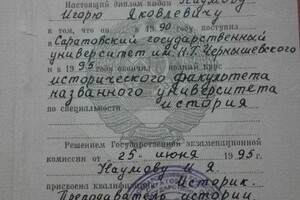 Настоящий диплом выдан Наумову
Игорю Яковлевичу
в том, что он в 1990 году поступил
в Саратовский государственный
университет им. Н.Г. Чернышевского
и в 1995 окончил полный курс
исторического факультета
названного университета
по специальности история
Решением Государственной экзаменационной
комиссии от 25 июня 1995 г.
Наумову И Я
присвоена квалификация Историк.
Преподаватель истории